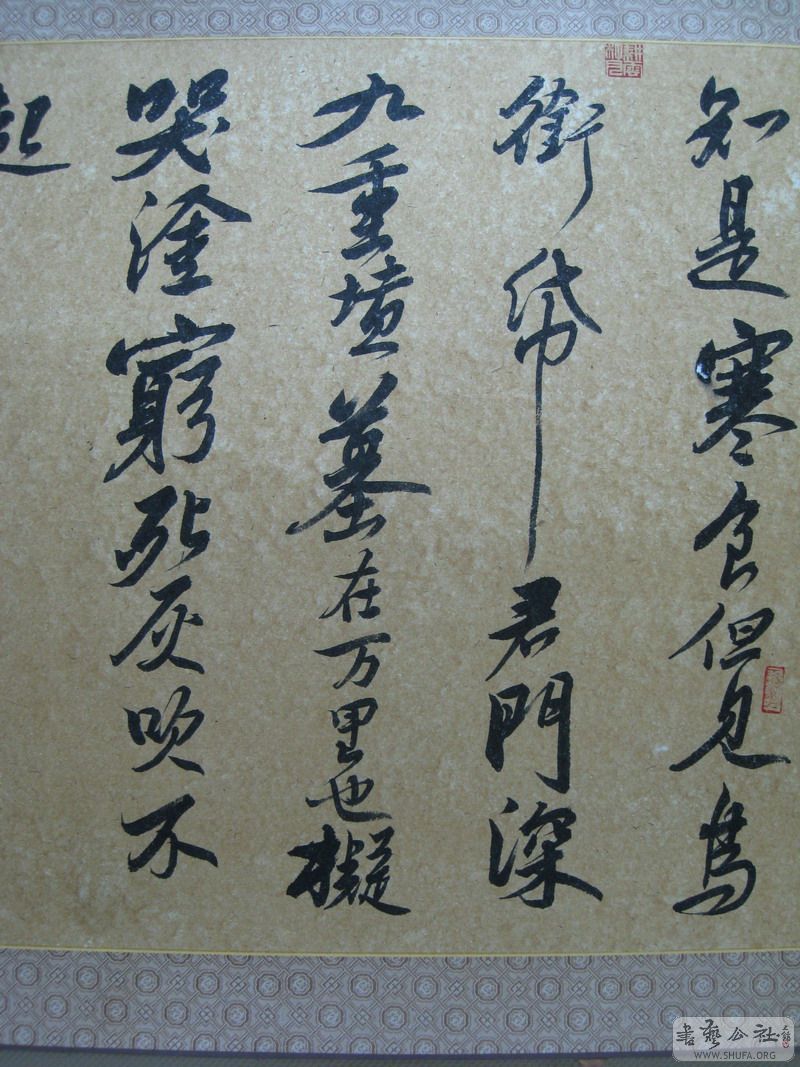 知是寒食但見烏
銜帋君門深
九重墳墓在万里也擬
哭塗窮死灰吹不
起
書藝公社
WWW.SHUFA.ORG